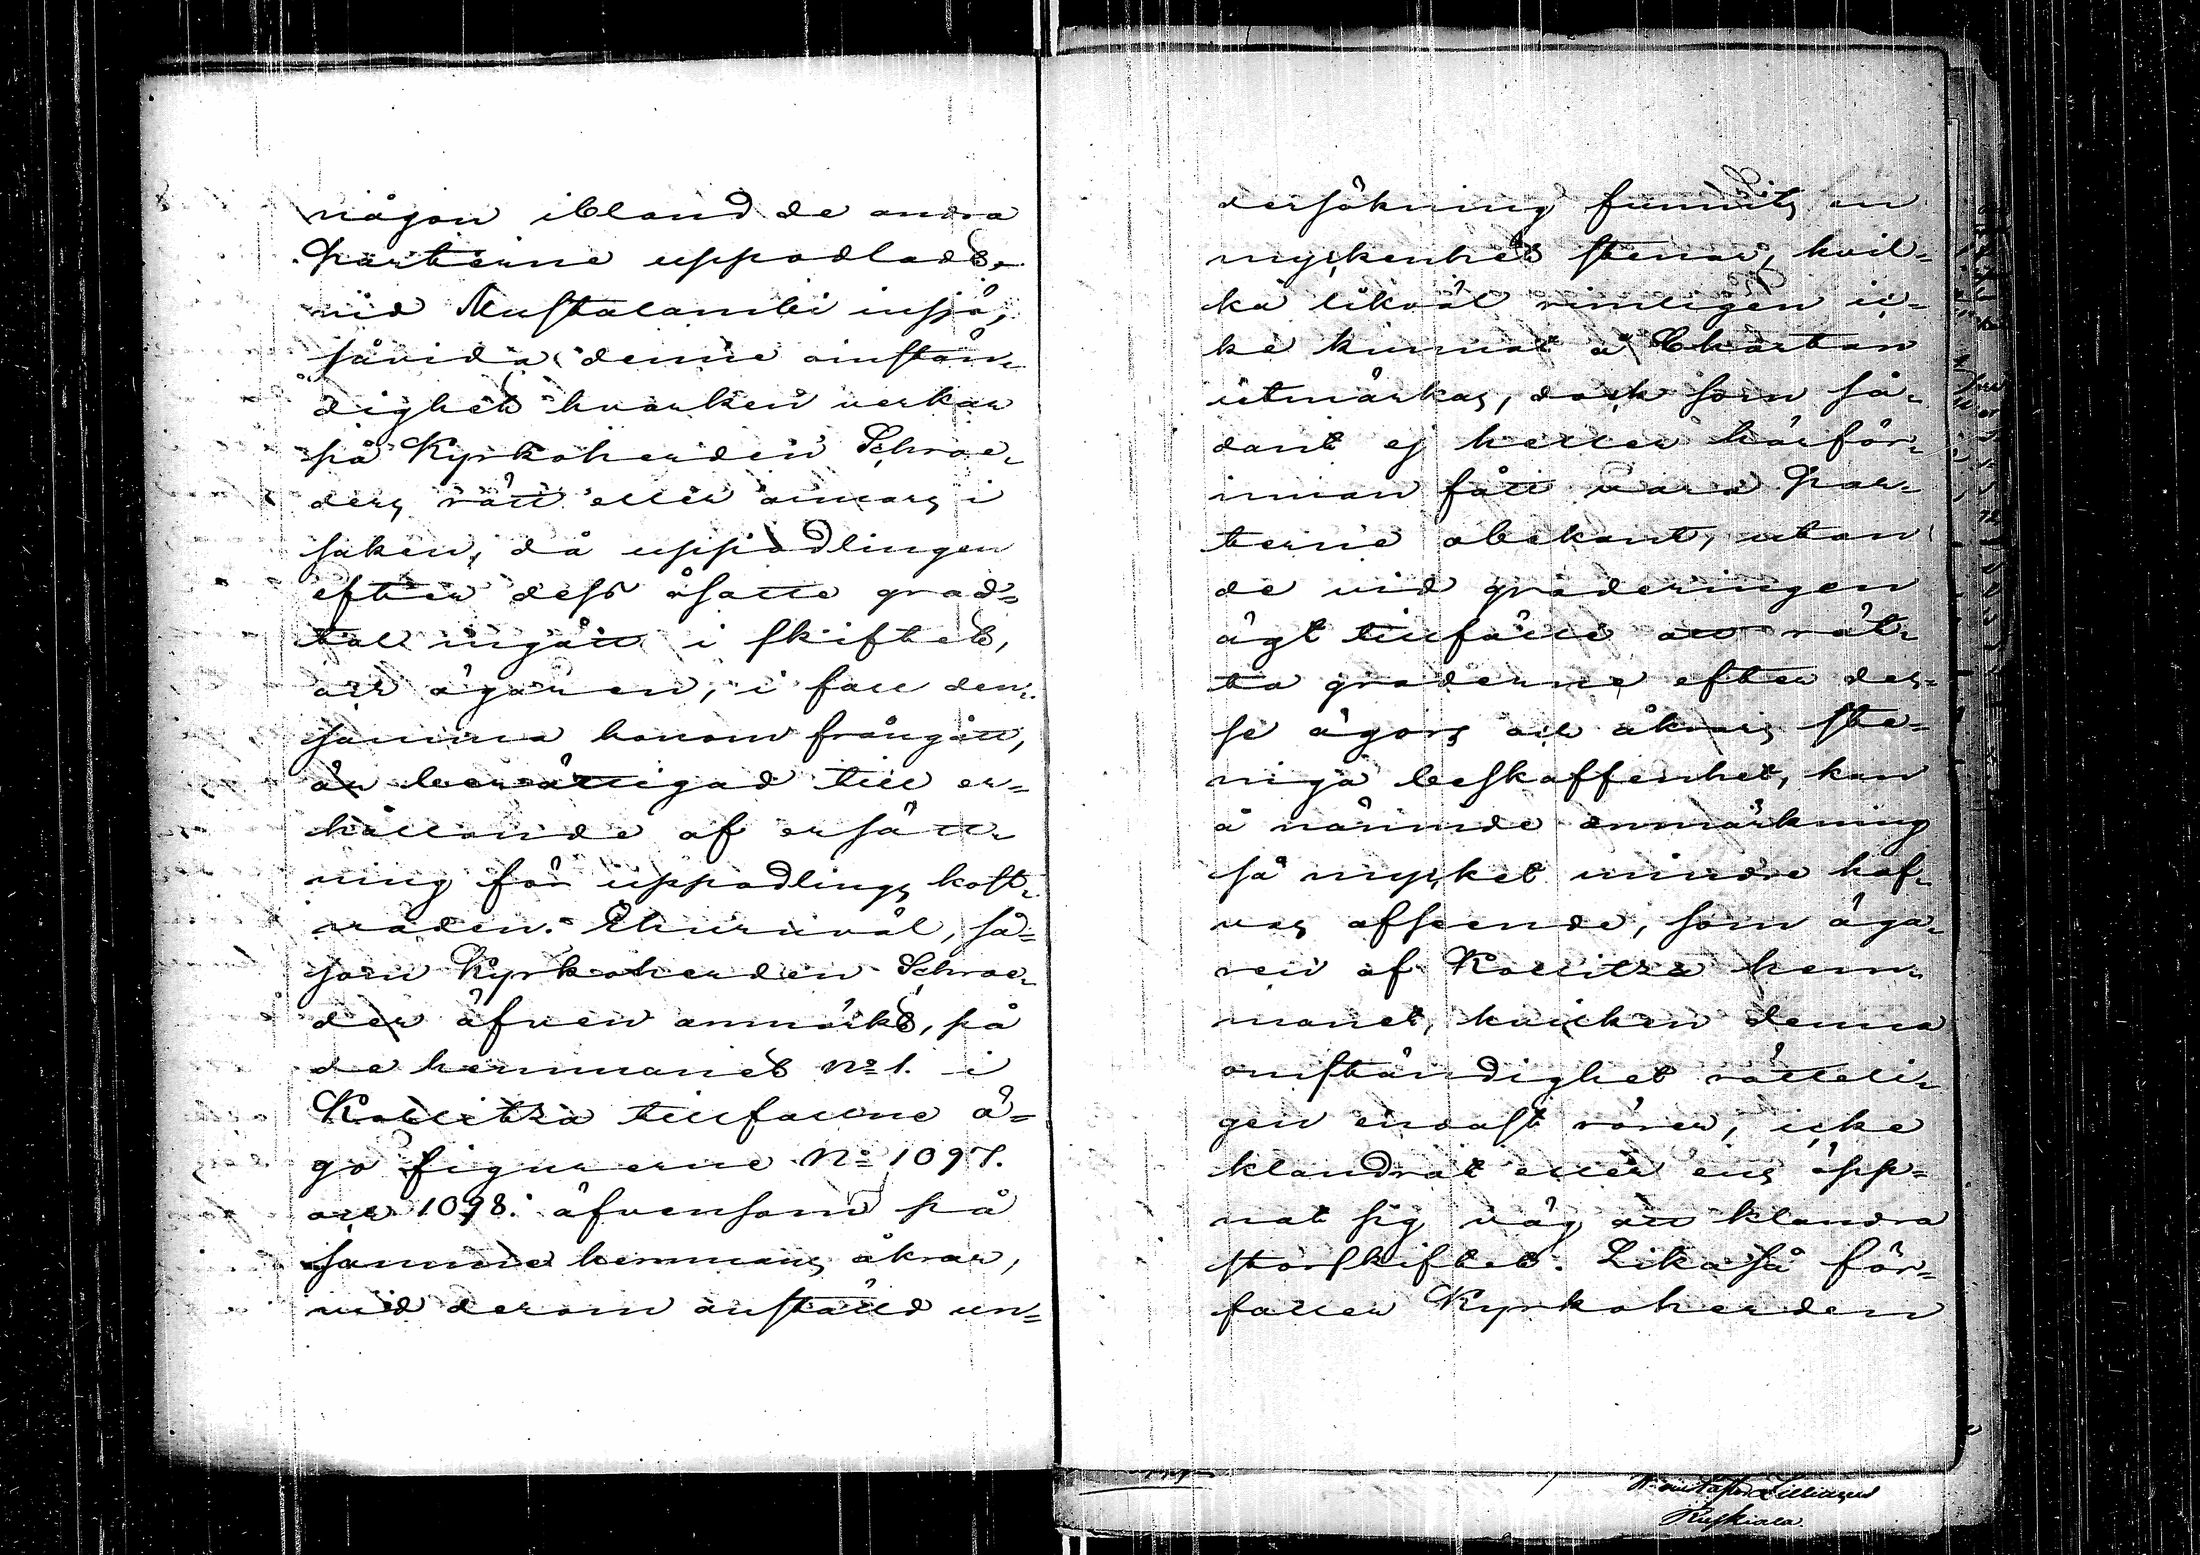 någon ibland de andra
Parterne uppodlads,
vid Mustalambi insjö,
såvida denne omstän-
dighet hvarken verkar
på Kyrkoherden Schroe-
ders rätt eller annars i
saken, då uppodlingen
efter dess åsatte grad=
tall ingått i skiftet,
och ägaren, i fall den-
samma honom frångått,
är berättigad till er=
hållande af ersätt-
ning för uppodlings kost-
naden. Ehuruväl, så=
som Kyrkoherden Schroe-
der äfven anmärkt, på
de hemmanet No 1. i
Kollitza tillfallne ä=
go figurerne No 1097.
och 1098. äfvensom på
samma hemmans åkrar,
vid derom anstäld un=
dersökning funnits en
myckenhet stenar, hvil=
ka likväl rimligen ic=
ke kunnat å Chartan
utmärkas, dock som så-
dant ej heller härför-
innan fått vara Par-
terne obekant, utan
de vid graderingen
ägt tillfälle att rät-
ta graderne efter des=
se ägors och åkrars ste=
niga beskaffenhet, kan
å nämnde anmärkning
så mycket mindre haf-
vas afseende, som äga-
ren af Kollitza hem-
manet, hvilken denna
omständighet rätteli-
gen endast rörer, icke
klandrat eller ens öpp=
nat sig väg att klandra
storskiftet. Likaså för=
faller Kyrkoherden
Ruskiala.